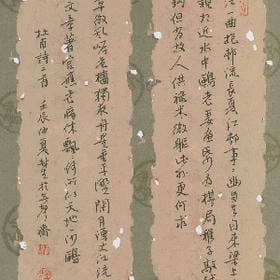 江一曲抱邨流長夏江邨事事幽自去自来梁上
親相近水中鷗老妻畫紙為棋局稚子敲
鈎但有故人供祿米微軀此外更何求
草微風岸危檣獨夜舟星垂平野闊月湧大江流
文章著官應老病休飄飄何所似天地一沙鷗
杜甫詩二首 壬辰仲夏